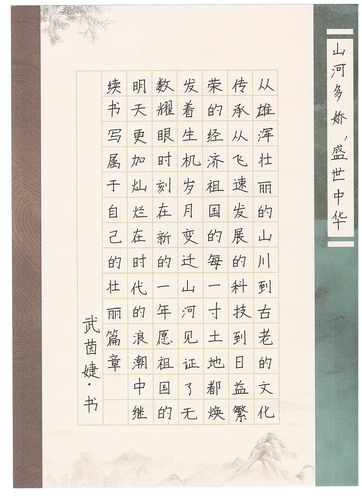 山河多娇，盛世中华
从雄浑壮丽的山川到古老的文化
传承从飞速发展的科技到日益繁
荣的经济祖国的每一寸土地都焕
发着生机岁月变迁山河见证了无
数耀眼时刻在新的一年愿祖国的
明天更加灿烂在时代的浪潮中继
续书写属于自己的壮丽篇章
武茵婕·书